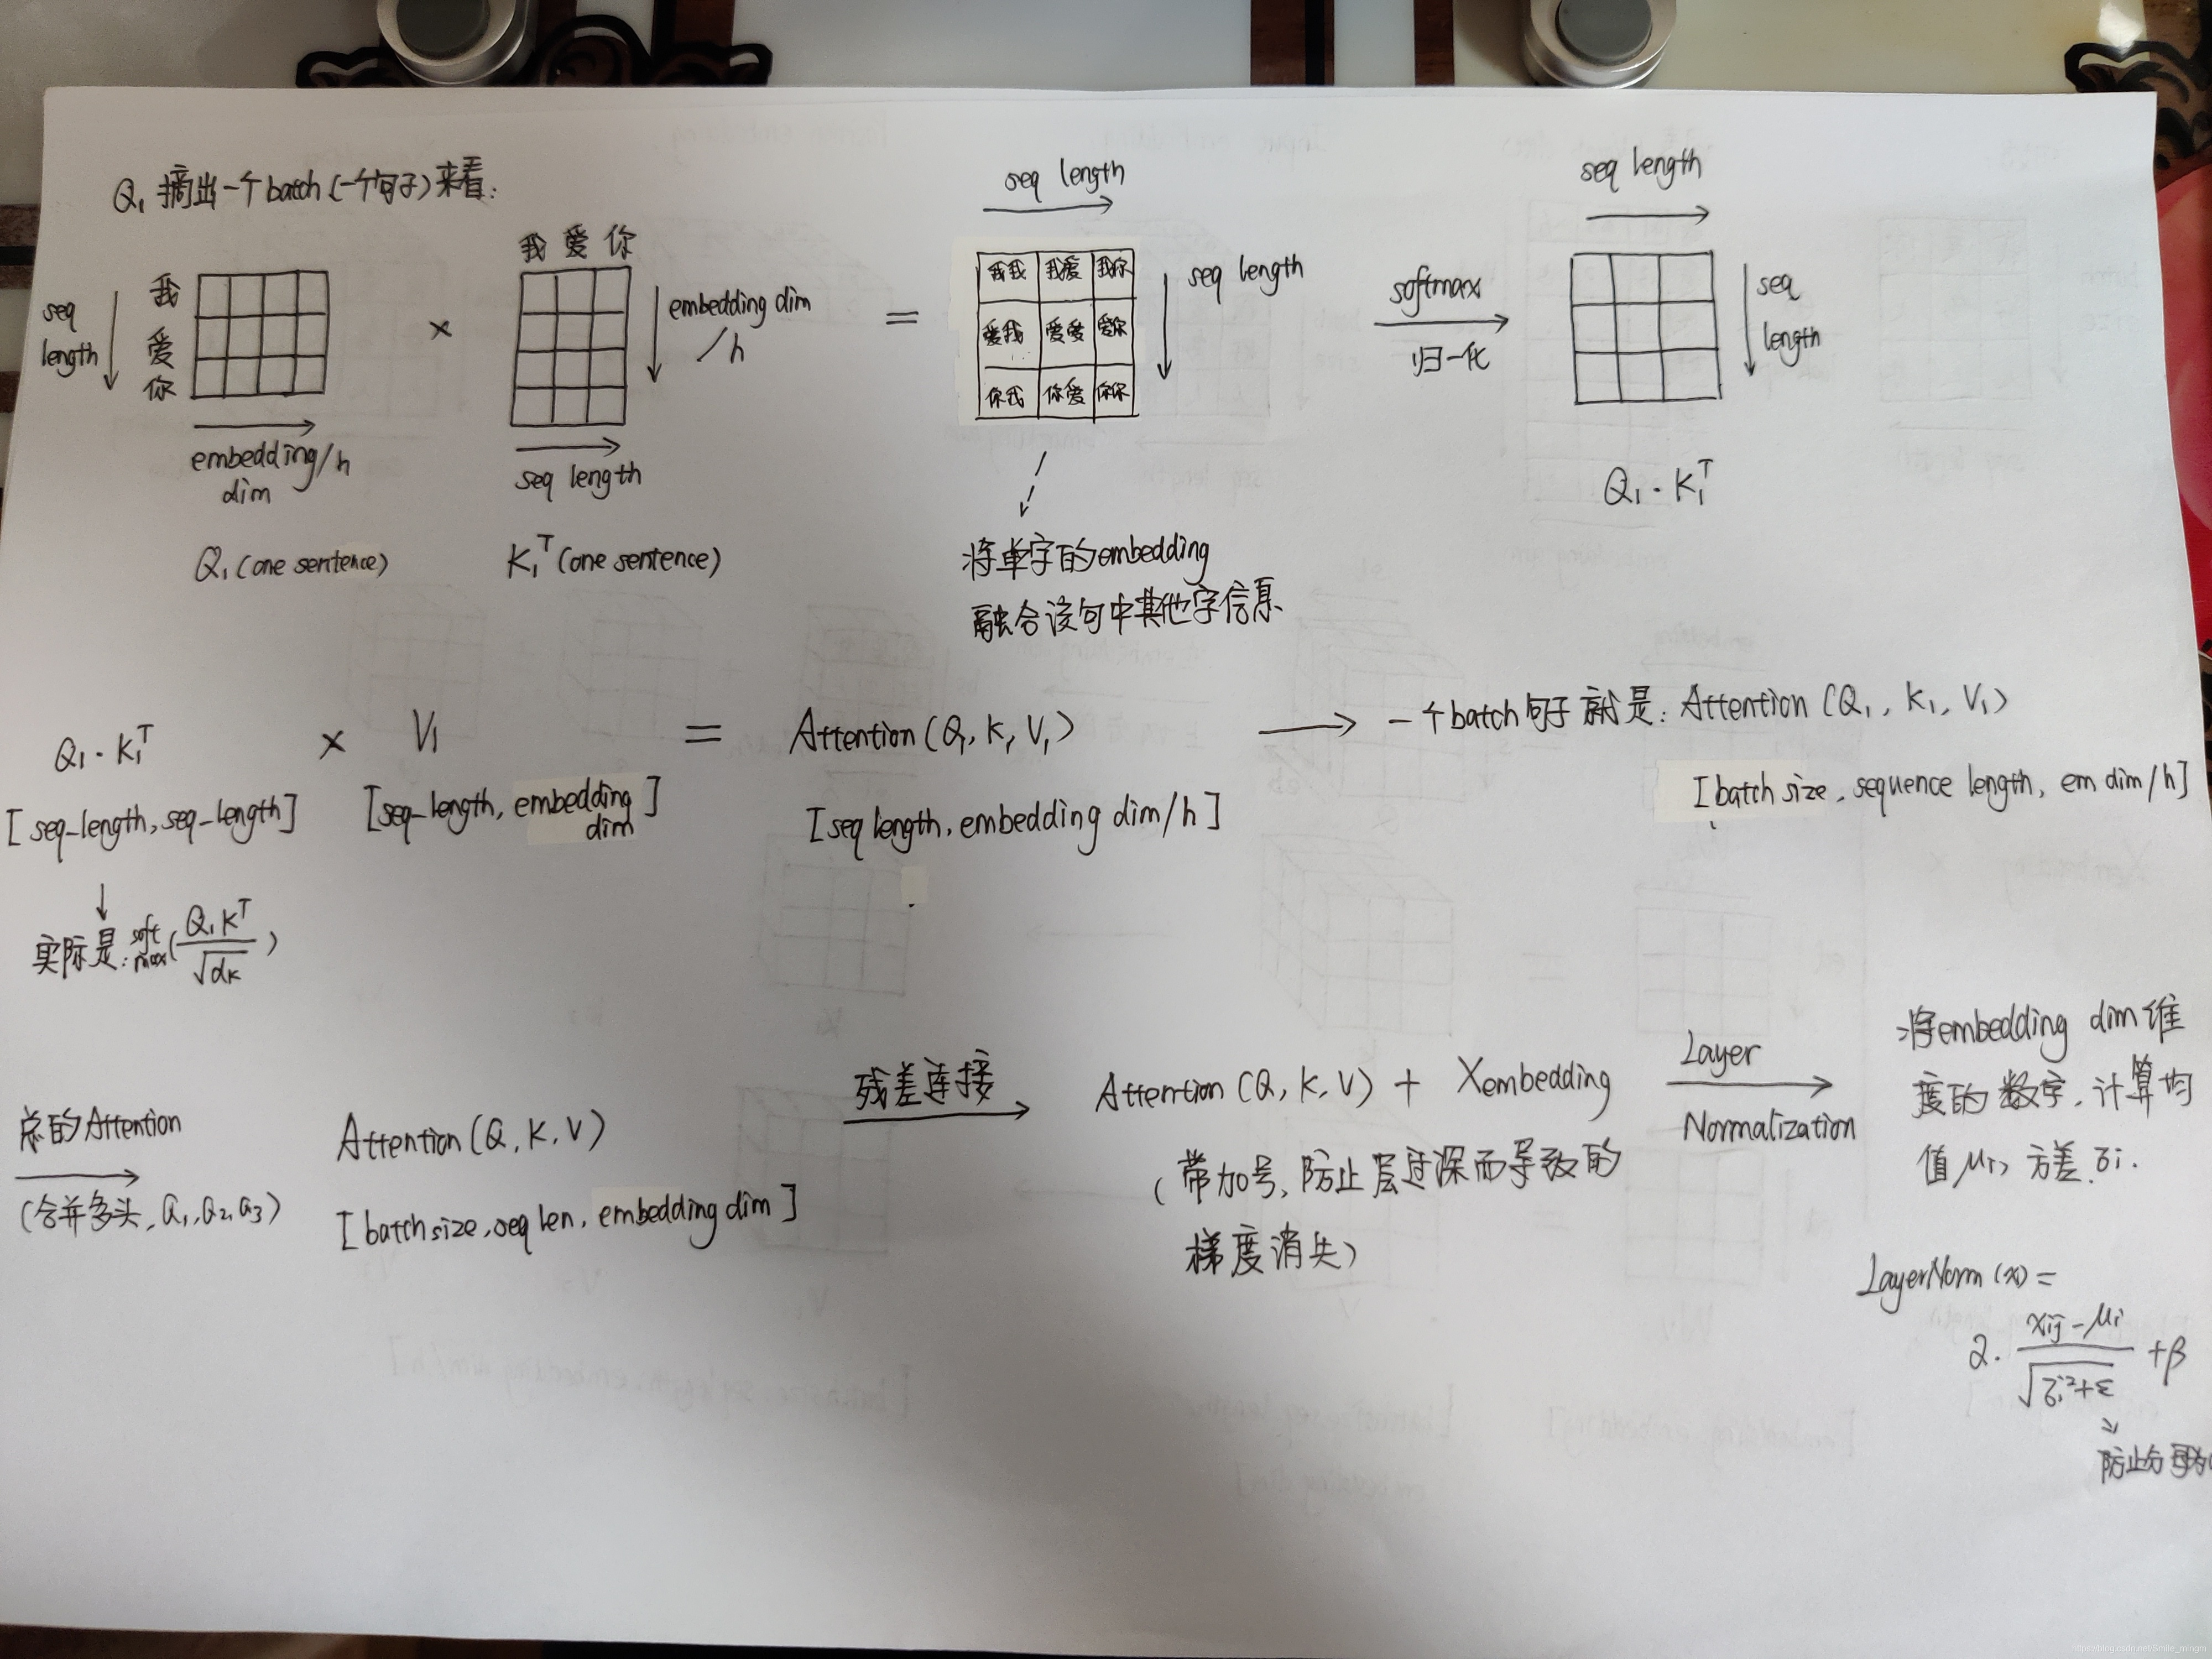 Q₁ 摘出一个batch(一个句子)来看:
seq length
我
爱
你
embedding/h
dim
Q₁ (one sentence)
×
我 爱 你
embedding dim
/h
seq length
K₁ᵀ (one sentence)
=
seq length
我我 我爱 我你
爱我 爱爱 爱你
你我 你爱 你你
seq length
将单字的embedding
融合该句中其他字信息
softmax
归一化
seq length
seq
length
Q₁ · K₁ᵀ
Q₁ · K₁ᵀ × V₁ = Attention (Q₁, K₁, V₁) → 一个batch句子就是: Attention (Q₁, K₁, V₁)
[seq-length, seq-length] [seq-length, embedding dim] [seq length, embedding dim/h] [batch size, sequence length, em dim/h]
实际是: softmax(Q₁Kᵀ/√dₖ)
总的Attention
(合并多头, Q₁, Q₂, Q₃)
Attention (Q, K, V)
[batch size, seq len, embedding dim]
残差连接
Attention (Q, K, V) + Xembedding
(带加号, 防止层过深而导致的
梯度消失)
Layer
Normalization
将embedding dim维
度的数字, 计算均
值μi, 方差σi.
LayerNorm (x) =
α · (xij - μi)/√(σi² + ε) + β
防止分母为
https://blog.csdn.net/Smile_mingm